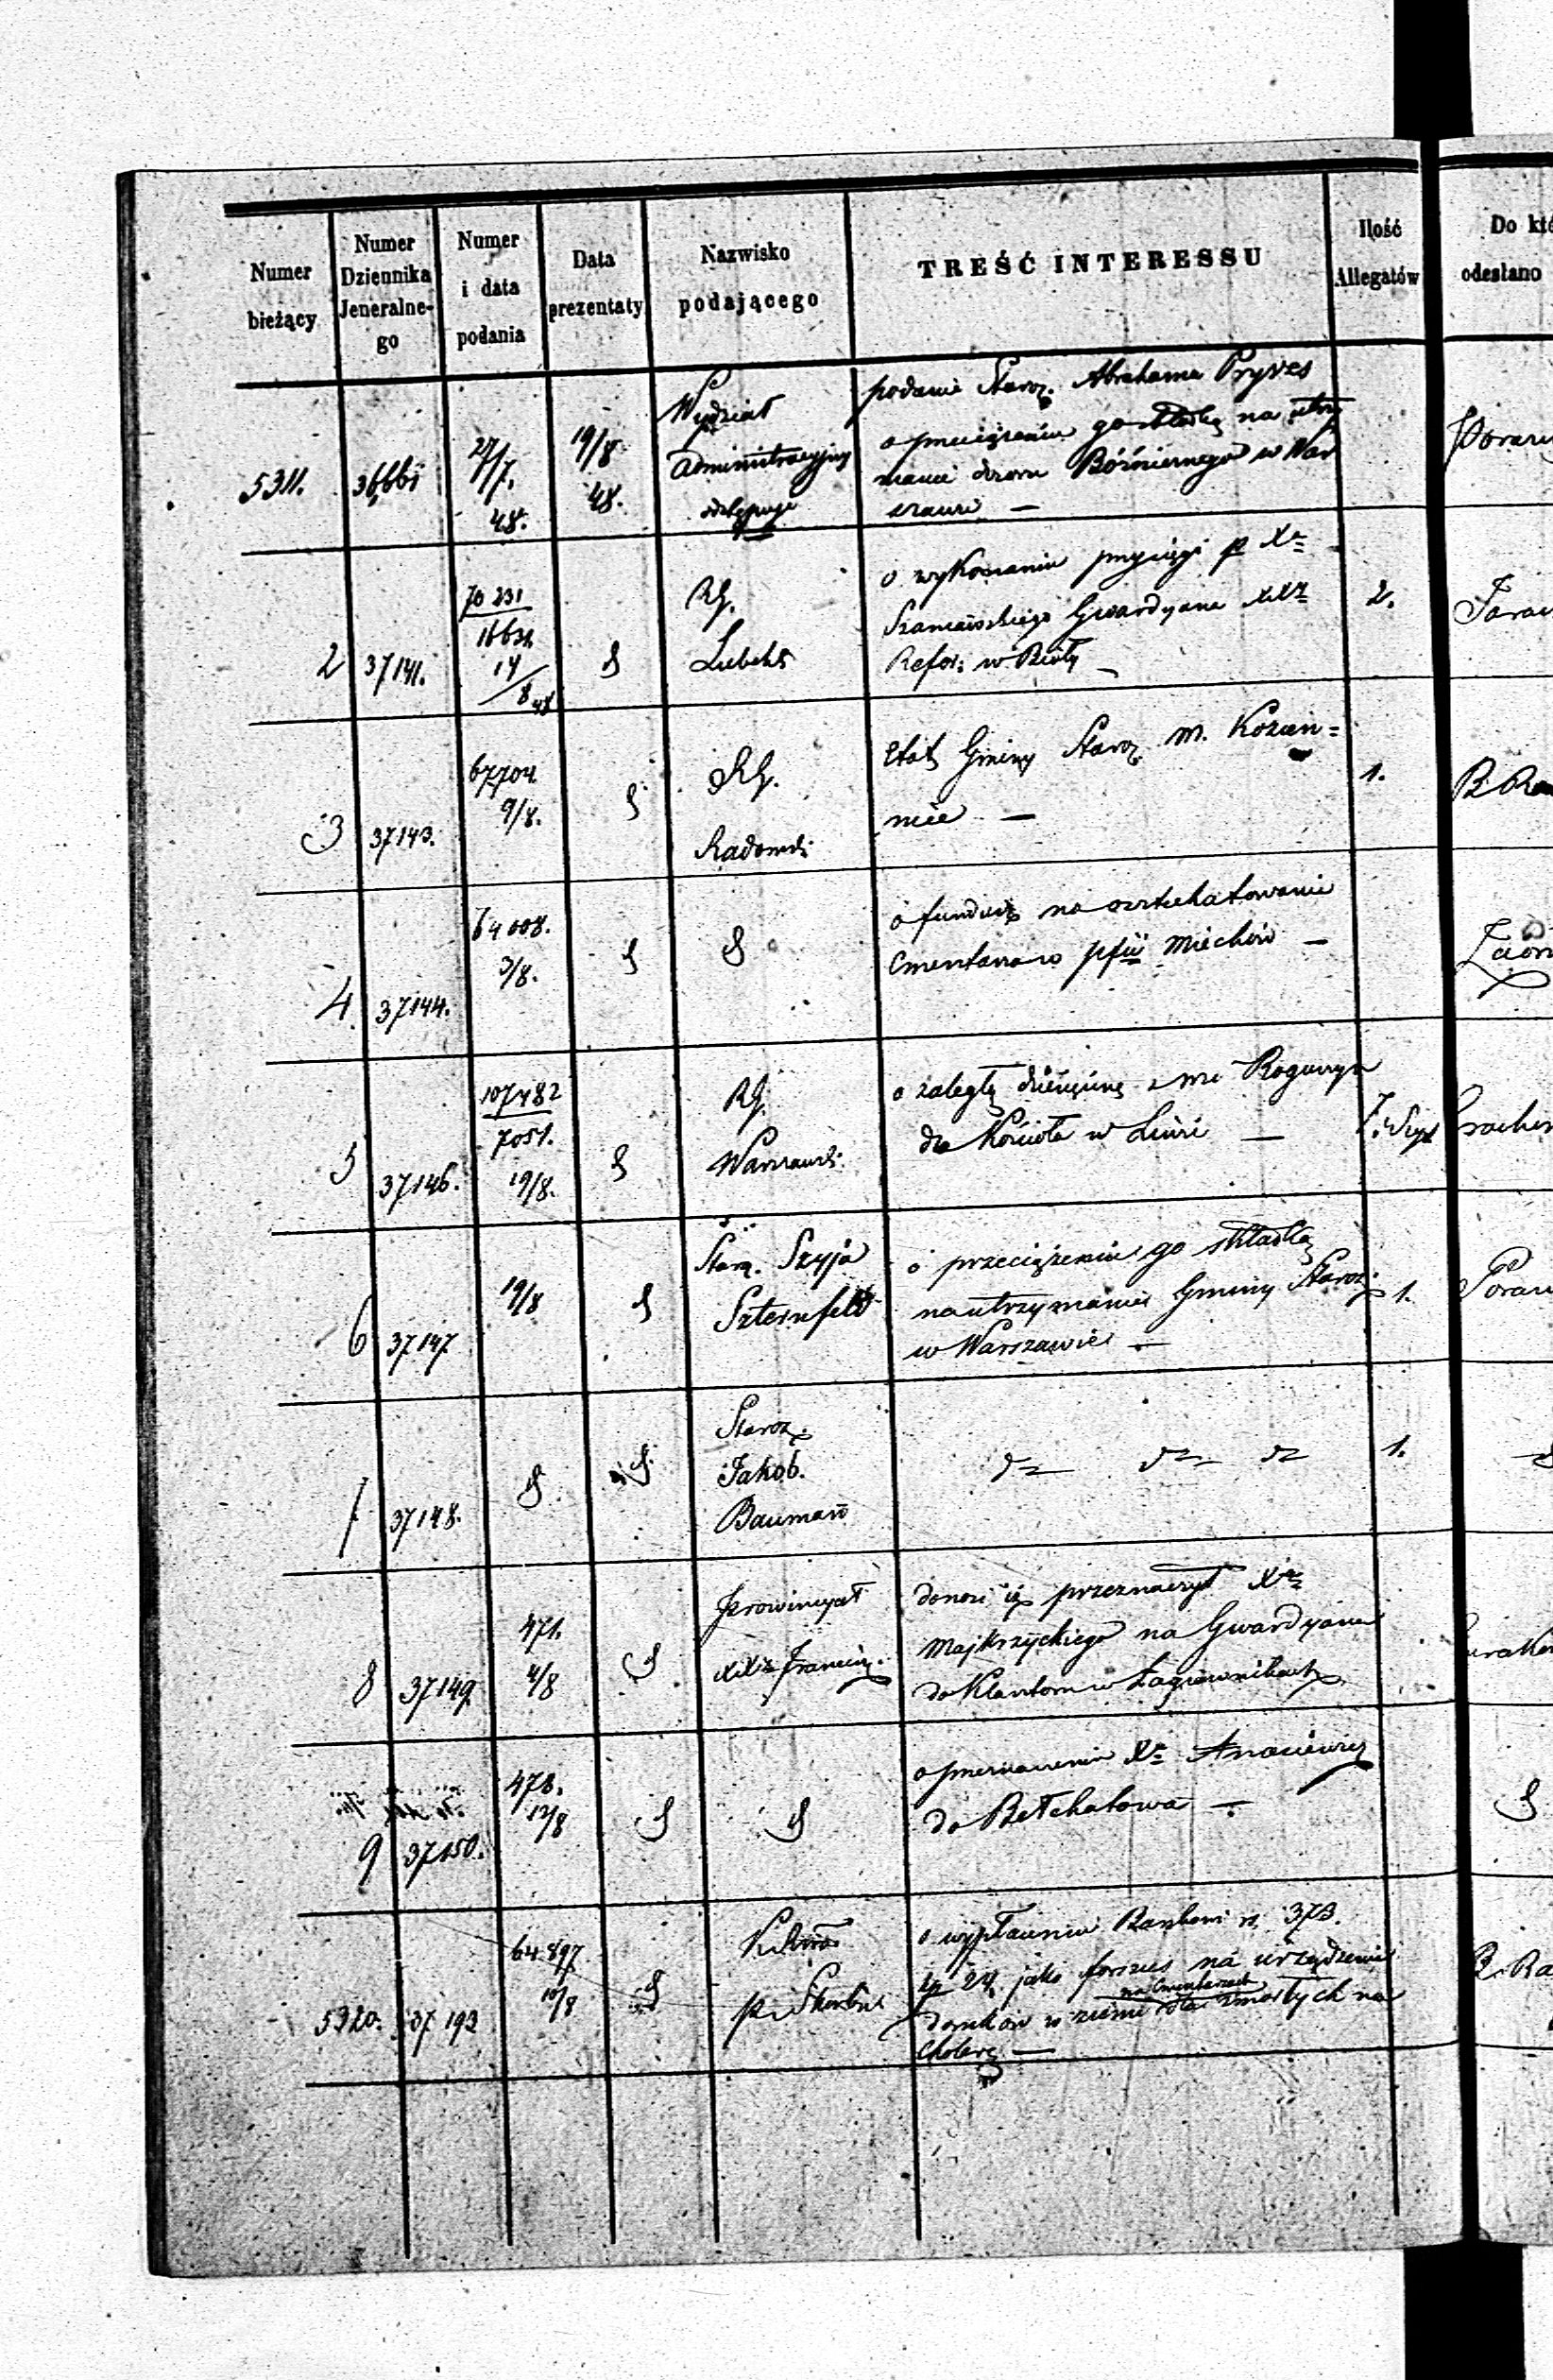 Numer bieżący
Numer Dziennika Jeneralne-go
Numer i data podania
Data prezentaty
Nazwisko podającego
TREŚĆ INTERESSU
Ilość Allegatów
Do któ
odesłano
5311.
27/7.
48.
19/8
48.
Wydział
Administracyjny
odstępuje
podanie Staroz. Abrahama Pryves
o przeciążenie go składką na utrzy
manie dozoru Bóźniczego w War
szawie —
2
37141.
70 231
16631.
14/8 48
RG.
Lubels
o wykonaniu przysięgi p Xa
Gwardyana XX
Refor: w Biały —
2.
3
37143.
67704.
9/8.
RG.
Radomski
Etat Gminy Staroz. m. Kozien=
nice —
1.
4
37144.
64008.
3/8.
o fundusz na oszta­chetowanie
Cmentarza w pfii Miechów —
5
37146.
107482
7051.
19/8.
RG.
Warszaws:
o zaległą dziesięcinę z
dla Kościoła w —
6
37147
19/8
Staroz. Szyja
Szternfeld
o przeciążenie go składką
na utrzymanie Gminy Staroz:
w Warszawie —
1.
37148.
Staroz.
Jakob.
Bauman
1.
8
37149
471.
4/8
Prowincyał
XX Francisz.
donosi iż przeznaczył Xa
Majkrzyckiego na Gwardyana
do Klasztoru w Łagiewnikach
9
37150.
478.
12/8
o przeniesieniu Xa
do Bełchatowa —
5320.
37 193
64.897
10/8
p. Skarbu
o wypłacenie rs. 373.
jako forszus na urządzenie
na Cmentarzach
domków w ziemi dla zmarłych na
Cholerę —